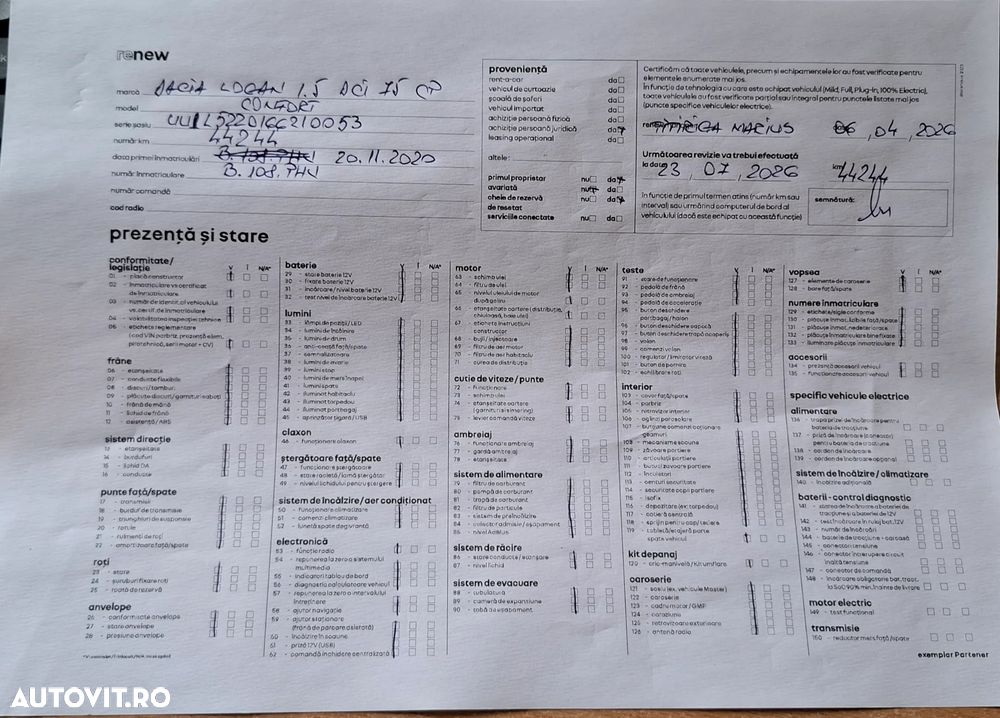 renew
marcă DACIA LOGAN 1.5 DCI 75 CP
model CONFORT
serie șasiu
număr km 44244
data primei înmatriculări 20.11.2020
număr înmatriculare
număr comandă
cod radio
proveniență
rent-a-car da
vehicul de curtoazie da
școală de șoferi da
vehicul importat da
achiziție persoană fizică da
achiziție persoană juridică da
leasing operațional da
altele:
primul proprietar nu da
avariată nu da
cheie de rezervă nu da
de resetat nu da
serviciile conectate nu da
Certificăm că toate vehiculele, precum și echipamentele lor au fost verificate pentru
elementele enumerate mai jos.
În funcție de tehnologia cu care este echipat vehiculul (Mild, Full, Plug-in, 100% Electric),
toate vehiculele au fost verificate parțial sau integral pentru punctele listate mai jos
(puncte specifice vehiculelor electrice).
MARIUS 06, 04, 2026
Următoarea revizie va trebui efectuată
la data 23, 07, 2026 km 44244
În funcție de primul termen atins (număr km sau
interval) sau urmărind computerul de bord al
vehiculului (dacă este echipat cu această funcție)
semnătură:
prezență și stare
conformitate/
legislație V I N/A*
01 - placă constructor
02 - înmatriculare vs certificat
de înmatriculare
03 - număr de identif. al vehiculului
vs. certif. de înmatriculare
04 - valabilitatea inspecției tehnice
05 - etichete reglementare
frâne
06 - etanșeitate
07 - conducte flexibile
08 - discuri/tambur
09 - plăcuțe discuri/garnituri saboți
10 - frână de mână
11 - lichid de frână
12 - asistență/ABS
sistem direcție
13 - etanșeitate
14 - burdufuri
15 - lichid DA
16 - conducte
punte față/spate
17 - transmisii
18 - burduf de transmisie
19 - triunghiuri de suspensie
20 - rotule
21 - rulmenți de roți
22 - amortizoare față/spate
roți
23 - stare
24 - șuruburi fixare roți
25 - roată de rezervă
anvelope
26 - conformitate anvelope
27 - stare anvelope
28 - presiune anvelope
baterie V I N/A*
29 - stare baterie 12V
30 - fixare baterie 12V
31 - încărcare/nivel baterie 12V
32 - test nivel de încărcare baterie 12V
lumini
33 - lămpi de poziții/LED
34 - lumini de întâlnire
35 - lumini de drum
36 - anti-ceață față/spate
37 - semnalizatoare
38 - lumini de avarie
39 - lumini stop
40 - lumini de mers înapoi
41 - lumini spate
42 - iluminat habitaclu
43 - iluminat torpedou
44 - iluminat portbagaj
45 - aprinzător țigară/USB
claxon
46 - funcționare claxon
ștergătoare față/spate
47 - funcționare ștergătoare
48 - stare racletă/lamă ștergător
49 - nivelul lichidului pentru ștergere
sistem de încălzire/aer condiționat
50 - funcționare climatizare
51 - comenzi climatizare
52 - lunetă spate degivrantă
electronică
53 - funcție radio
54 - repunerea la zero a sistemului
multimedia
55 - indicatori tablou de bord
56 - diagnostic calculatoare vehicul
57 - repunerea la zero a intervalului
întreținere
58 - ajutor navigație
59 - ajutor staționare
(frână de parcare asistată)
60 - încălzire în scaune
61 - priză 12V (USB)
62 - comandă închidere centralizată
motor V I N/A*
63 - schimb ulei
64 - filtru de ulei
65 - nivelul uleiului de motor
după golire
66 - etanșeitate cartere (distribuție,
chiulasă, baie ulei)
67 - etichete instrucțiuni
constructor
68 - bujii/injectoare
69 - filtru de aer motor
70 - filtru de aer habitaclu
71 - curea de distribuție
cutie de viteze/punte
72 - funcționare
73 - stare
74 - etanșeitate cartere
75 - levier comandă viteze
ambreiaj
76 - funcționare ambreiaj
77 - gardă ambreiaj
78 - etanșeitate
sistem de alimentare
79 - filtru de carburant
80 - pompă de carburant
81 - trapă de carburant
82 - filtru de particule
83 - sistem de preîncălzire
84 - colector admisie/eșapament
85 - nivel AdBlue
sistem de răcire
86 - stare conducte/etanșare
87 - nivel lichid
sistem de evacuare
88 - tubulatură
89 - cameră de expansiune
90 - tobă de eșapament
teste V I N/A*
91 - stare de funcționare
92 - pedală de frână
93 - pedală de ambreiaj
94 - pedală de accelerație
95 - buton deschidere
portbagaj/hayon
96 - buton deschidere capotă
97 - buton deschidere trapă acoperiș
98 - volan
99 - comenzi volan
100 - regulator/limitator viteză
101 - buton de pornire
102 - echilibrare roți
interior
103 - covor față/spate
104 - parbriz
105 - retrovizor interior
106 - oglinzi parasolare
107 - butoane comenzi acționare
geamuri
108 - mecanisme scaune
109 - zăvoare portiere
110 - articulații portiere
111 - butuci zăvoare portiere
112 - încuietori
113 - centuri securitate
114 - securitate copii portiere
115 - isofix
116 - depozitare (ex: torpedou)
117 - cotieră centrală
118 - sprijin pentru cap/tetiere
spate vehicul
kit depanaj
120 - cric-manivelă/Kit umflare
caroserie
121 - șasiu (ex. vehicule Master)
122 - caroserie
123 - cadru motor/GMP
124 - coroziune
125 - retrovizoare exterioare
126 - antenă radio
vopsea V I N/A*
127 - elemente de caroserie
128 - bare față/spate
numere înmatriculare
129 - etichete/sigle conforme
130 - plăcuțe înm. lizibile față/spate
131 - plăcuțe înm. nedeteriorate
132 - plăcuțe înmatriculare bine fixate
133 - iluminare plăcuțe înmatriculare
accesorii
134 - prezență accesorii vehicul
135 - funcționare accesorii vehicul
specific vehicule electrice
alimentare
136 - trapa prizei de încărcare pentru
bateria de tracțiune
137 - priză de încărcare (conector)
pentru bateria de tracțiune
138 - cordon de încărcare
139 - cordon de încărcare opțional
sistem de încălzire/climatizare
140 - încălzire adițională
baterii - control diagnostic
141 - starea de încărcare a bateriei de
tracțiune și a bateriei de 12V
142 - test încărcare în rulaj bat. 12V
143 - număr de încărcări
144 - bateria de tracțiune - carcasă
145 - conectori tensiune
146 - conector întrerupere circuit
înaltă tensiune
147 - conector de comandă
148 - încărcare obligatorie bat. tracț.
la SOC 90% min. înainte de livrare
motor electric
149 - test funcțional
transmisie
150 - reductor mers față/spate
exemplar Partener
AUTOVIT.RO